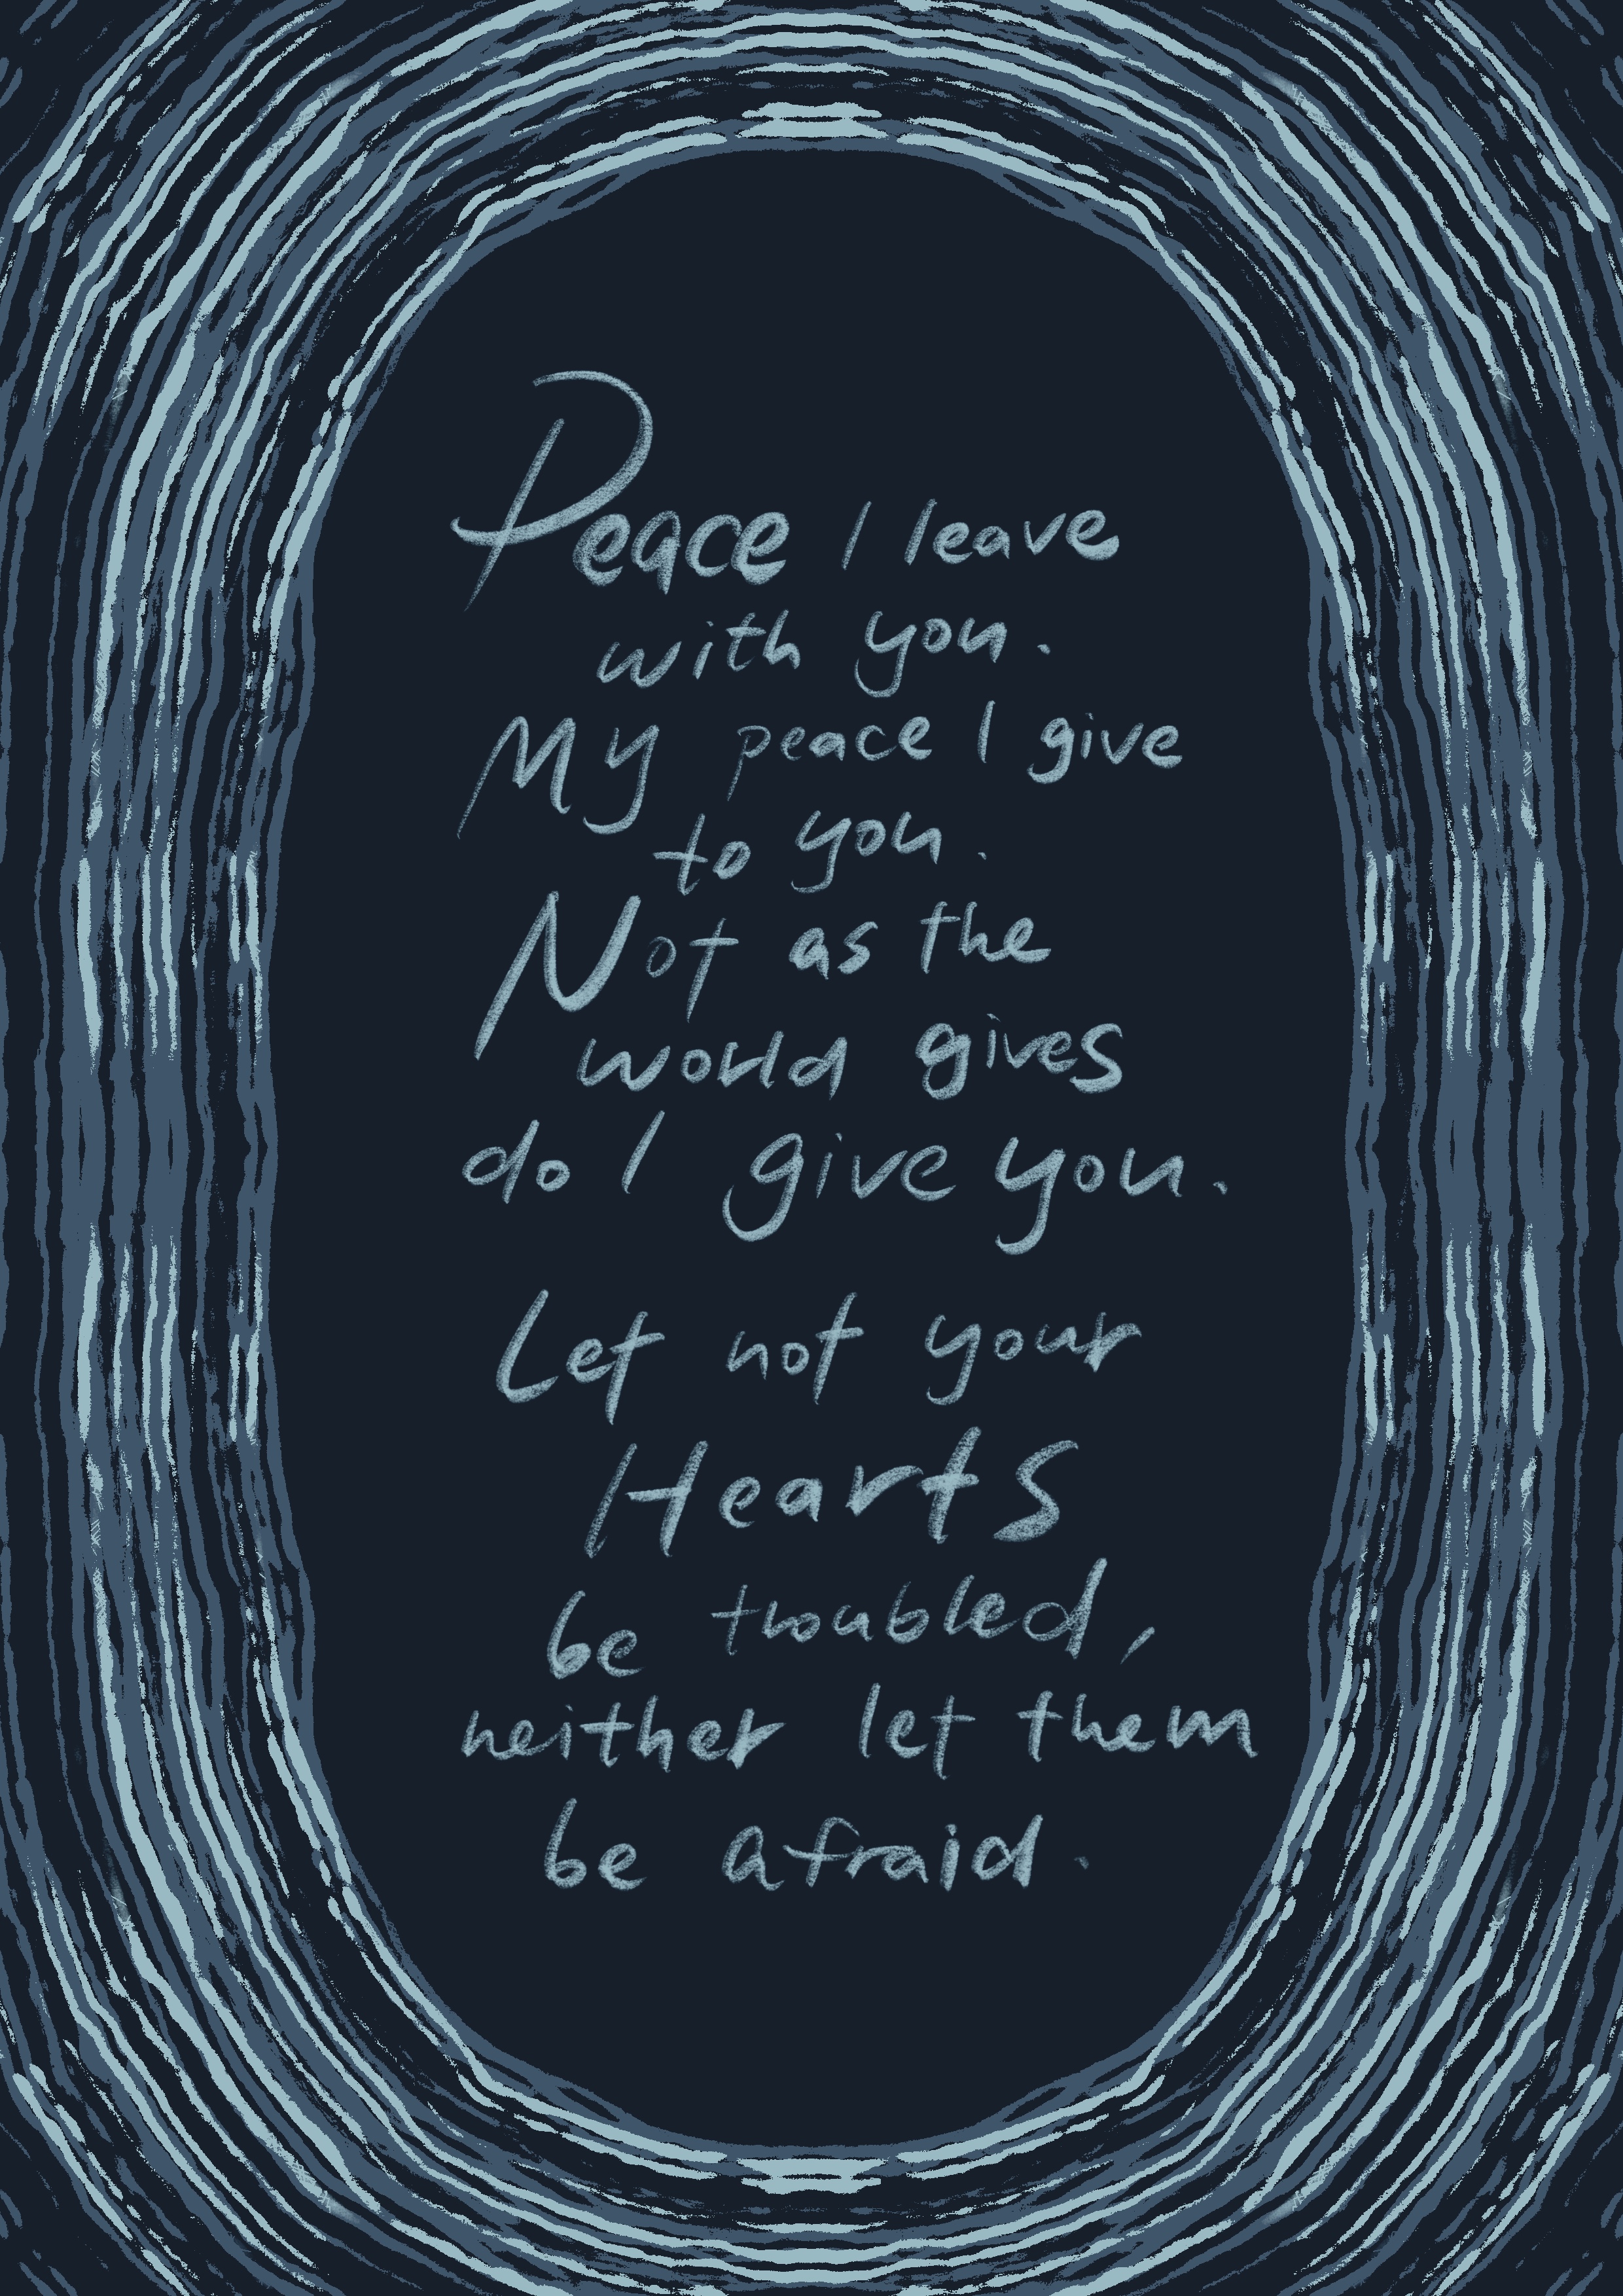 Peace I leave
with you.
My peace I give
to you.
Not as the
world gives
do I give you.
Let not your
Hearts
be troubled,
neither let them
be afraid.